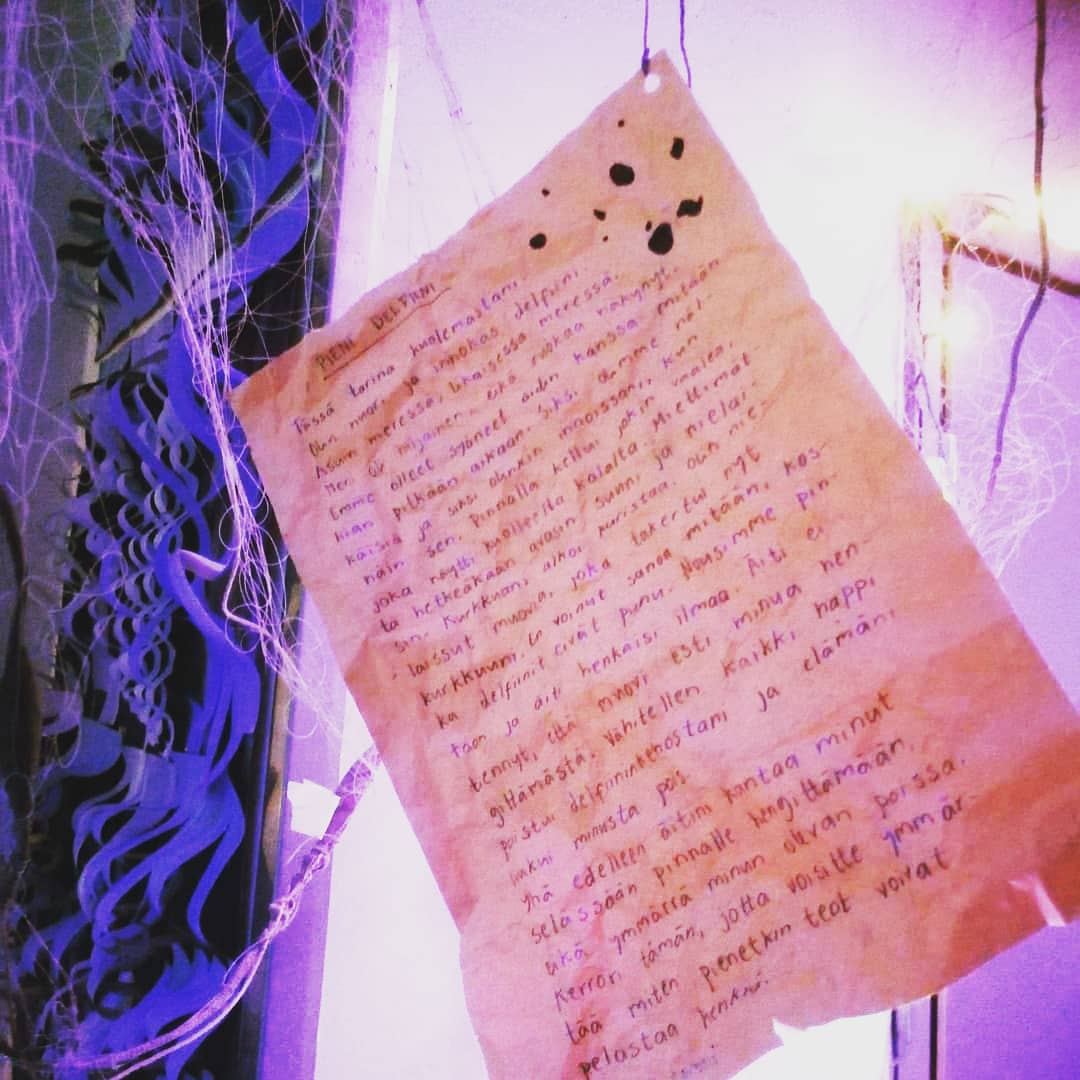 PIENI DELFIINI
Tässä tarina kuolemastani.
Olin nuori ja innokas delfiini.
Asuin meressä, likaisessa meressä.
Meri oli hiljainen, eikä ruokaa näkynyt.
Emme olleet syöneet äidin kanssa mitään
pitkään aikaan. Siksi olimme näl-
käisiä ja siksi olinkin innoissani, kun
näin sen. Pinnalla kellui jokin vaalea,
joka näytti kuolleelta kalalta. Miettimät-
tä hetkeäkään avasin suuni ja nielai-
sin. Kurkkuani alkoi puristaa. Olin nie-
laissut muovia, joka takertui nyt
kurkkuuni. En voinut sanoa mitään, kos-
ka delfiinit eivät puhu. Nousimme pin-
taan ja äiti henkäisi ilmaa. Äiti ei
tiennyt, että muovi esti minua hen-
gittämästä. Vähitellen kaikki happi
poistui delfiininkehostani ja elämäni
hukui minusta pois.
Yhä edelleen äitini kantaa minut
selässään pinnalle hengittämään,
eikä ymmärrä minun olevan poissa.
Kerron tämän, jotta voisitte ymmär-
tää miten pienetkin teot voivat
pelastaa henkiä.